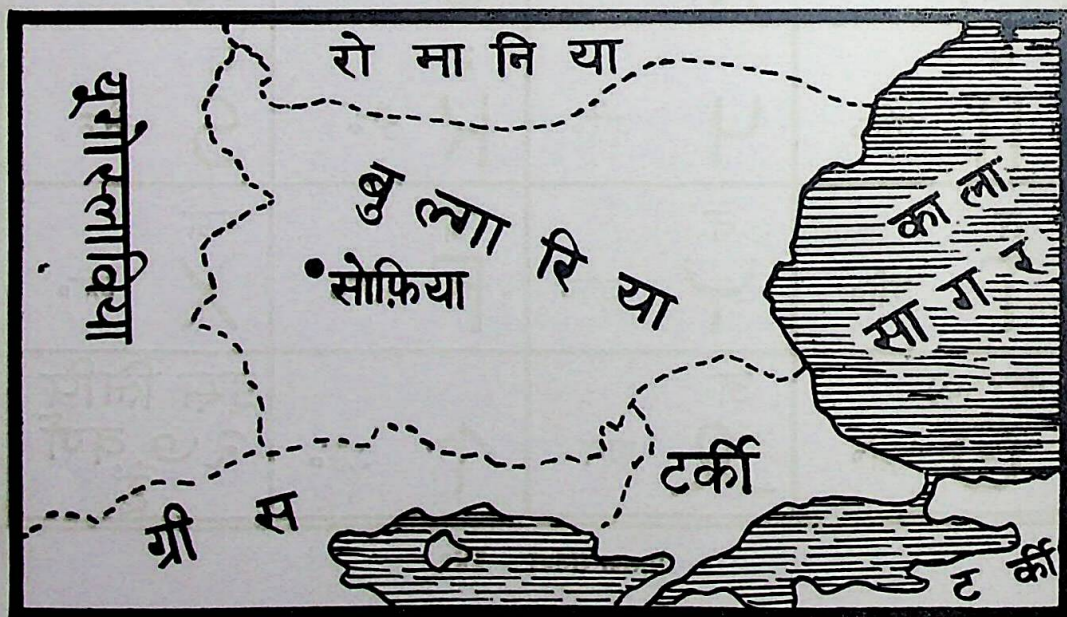 रो मा नि या
यूगोस्लाविया
बु ल्गा रि या
सोफ़िया
का ला
सा ग र
टर्की
ग्री स
ट र्की